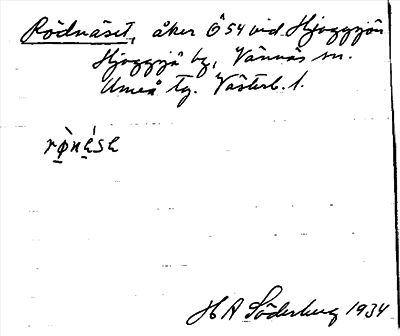 Rödnäset, åker Ö 54 vid Hjoggsjön
Hjoggsjö by, Vännäs sn.
Umeå tg. Västerb. l.
H A Söderberg 1934